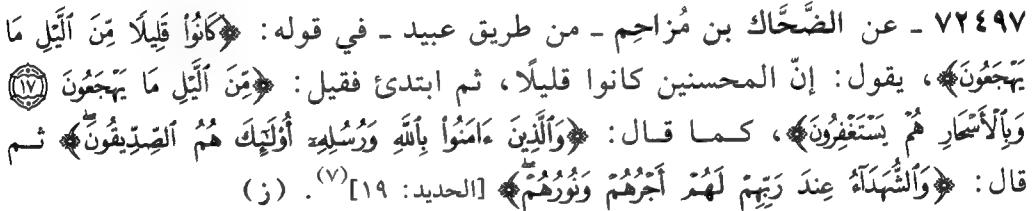 ٧٢٤٩٧ ـ عن الضَّحَّاك بن مُزاحِم ـ من طريق عبيد ـ في قوله: ﴿كَانُوا۟ قَلِيلًا مِّنَ ٱلَّيْلِ مَا
يَهْجَعُونَ﴾، يقول: إنّ المحسنين كانوا قليلًا، ثم ابتدئ فقيل: ﴿مِّنَ ٱلَّيْلِ مَا يَهْجَعُونَ ۝١٧
وَبِٱلْأَسْحَارِ هُمْ يَسْتَغْفِرُونَ﴾، كـمـا قـال: ﴿وَٱلَّذِينَ ءَامَنُوا۟ بِٱللَّهِ وَرُسُلِهِۦٓ أُو۟لَٰٓئِكَ هُمُ ٱلصِّدِّيقُونَۖ﴾ ثـم
قال: ﴿وَٱلشُّهَدَآءُ عِندَ رَبِّهِمْ لَهُمْ أَجْرُهُمْ وَنُورُهُمْۖ﴾ [الحديد: ١٩]⁽⁷⁾. (ز)